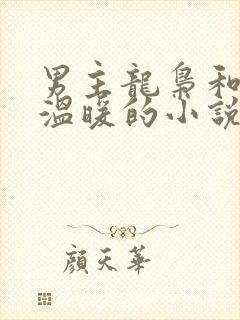 男主龍梟和
溫暖的小說
顏天華